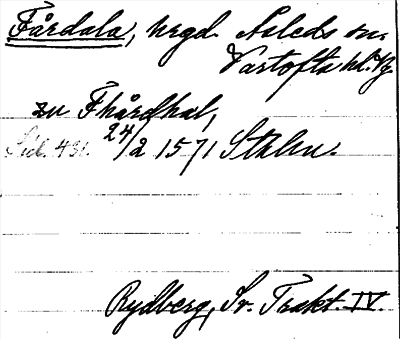 Fårdala, hrgd. Åsleds sn.
Vartofta hd. Vg.
zu Fhårdhal,
Sid. 431. 24/2 1571 Sthlm.
Rydberg, Sv. Trakt. IV.